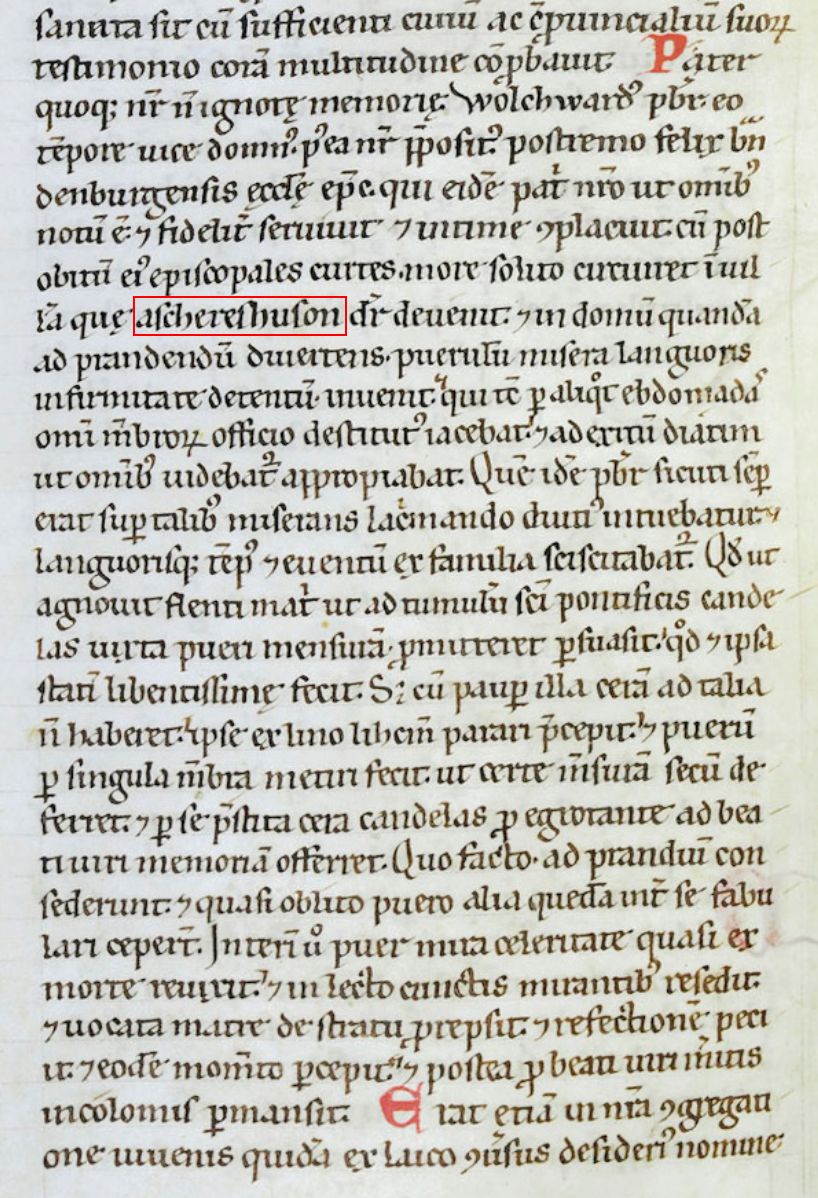 sanata sit cū sufficienti ciuiū ac c̄ꝓuincialiū suoꝝ
testimonio corā multitudine cōꝓbauit. Pater
quoq; nr̄ n̄ ignotę memorię. Wolchwardꝰ pbr̄ eo
tēpore uice domnꝰ. p̄ea nr̄ p̄positꝰ postremo felix brā
denburgensis ęcclę̄ ep̄c. qui eidē pat͛ nr̄o ut omībꝰ
notū ē. ⁊ fidelit͛ seruiuit ⁊ intime ꝯplacuit. cū post
obitū eiꝰ episcopales curtes more solito circuiret ī uil
lā quę aschereshuson dr̄ deuenit. ⁊ in domū quandā
ad prandendū diuertens. puerulū misera languoris
infirmitate detentū inuenit. qui tē ꝑ aliqͦt ebdomadaꝰ
omī mb̄roꝝ officio destitutꝰ iacebat. ⁊ ad exitū diatim
ut omībꝰ uidebat᷑ appropiabat. Quē idē pbr̄ sicuti sēꝑ
erat suꝑ talibꝰ miserans lac̄mando diutiꝰ intuebatur ⁊
languorisq; tēpꝰ ⁊ euentū ex familia sciscitabat᷑. Qd̄ ut
agnouit flenti mat͛ ut ad tumulū sc̄i pontificis cande
las iuxta pueri mensurā ꝓmitteret ꝑsuasit. qd̄ ⁊ ipsa
statī libentissimę fecit. S; cū pauꝑ illa cerā ad talia
n̄ haberet. ipse ex lino lihcinī parari p̄cepit. ⁊ puerū
ꝑ singula mb̄ra metiri fecit. ut certe m̄surā secū de
ferret. ⁊ ꝑ se p̄stita cera candelas ꝓ egrotante ad bea
ti uiri memoriā offerret. Quo facto. ad prandiuī con
sederunt. ⁊ quasi oblito puero alia quedā int͛ se fabu
lari ceper̄t. Interī uͦ puer mira celeritate quasi ex
morte reuixit. ⁊ in lecto cunctis mirantibꝰ resedit.
⁊ uocata matre de stratu ꝓrepsit. ⁊ refectionē peci
it. ⁊ eodē mom̄to ꝑcepit. ⁊ postea ꝓ beati uiri m̄itis
incolomis ꝑmansit. Erat etiā in nr̄a ꝯgregati
one iuuenis quidā ex laico ꝯuͥsus desideriꝰ nomine